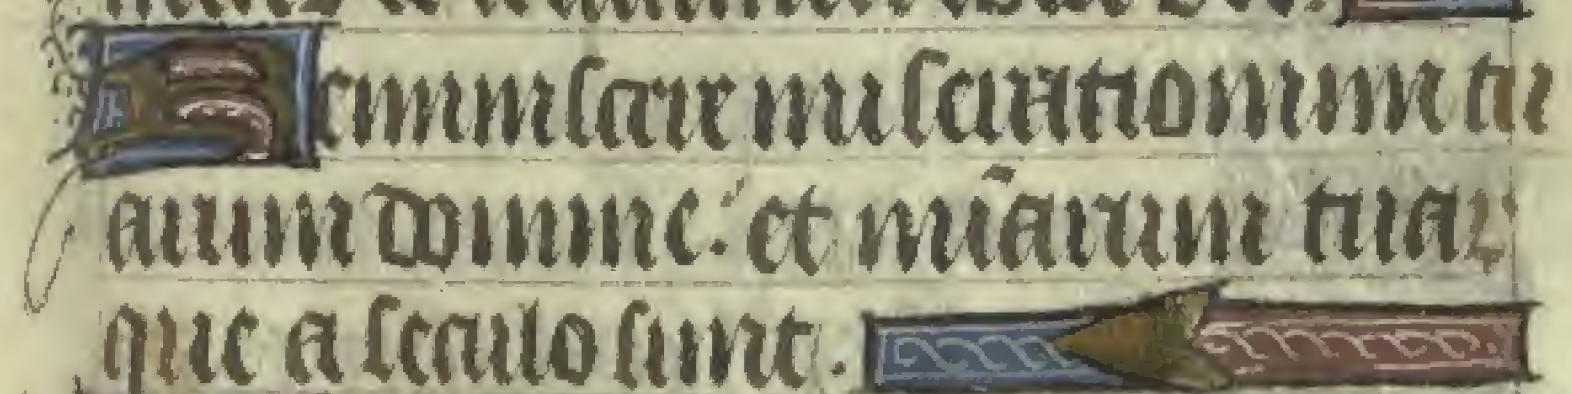 Reminiscere miserationum tu
arum domine. et mĩarum tuaꝝ
que a seculo sunt.